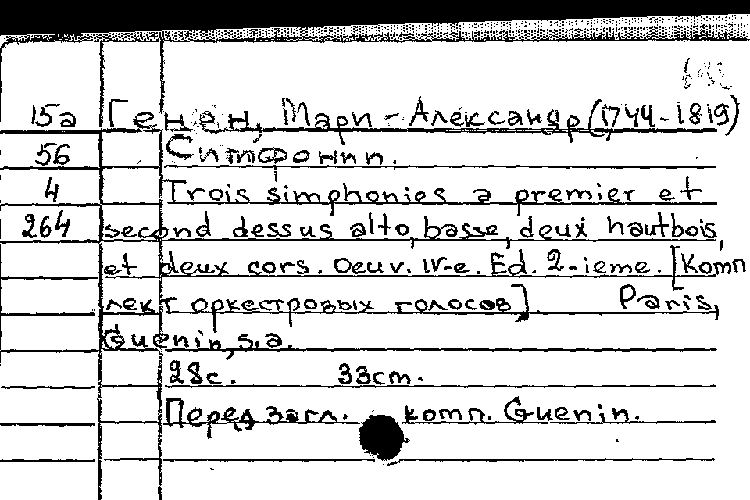 15а Генен, Мари-Александр (1744-1819)
56 Симфонии.
4 Trois simphonies a premier et
264 second dessus alto, basse, deux hautbois,
et deux cors. Oeuv. IV-e. Ed. 2-ieme. [Комп
лект оркестровых голосов]. Paris,
Guenin, s.a.
28с. 33cm.
Перед загл. комп. Guenin.